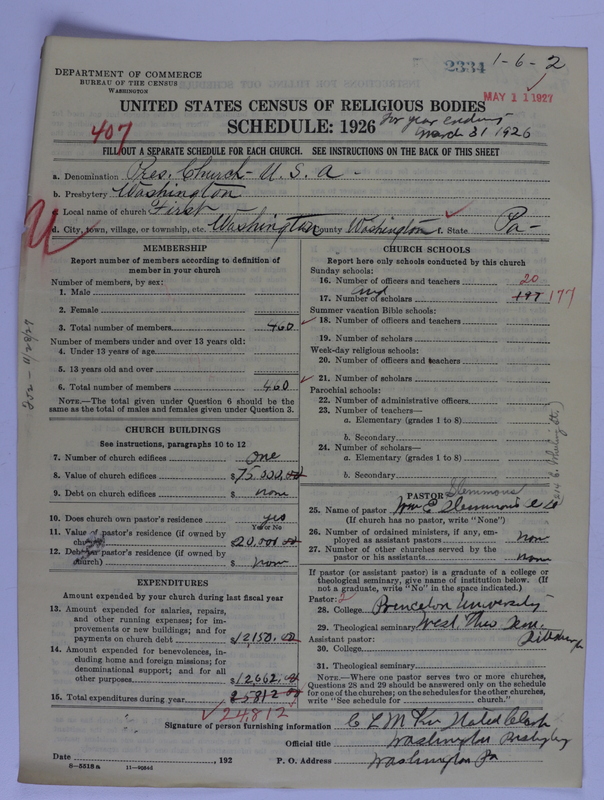 2334
1-6-2
DEPARTMENT OF COMMERCE
BUREAU OF THE CENSUS
WASHINGTON
MAY 11 1927
UNITED STATES CENSUS OF RELIGIOUS BODIES
SCHEDULE: 1926
For year ending
March 31 1926
407
FILL OUT A SEPARATE SCHEDULE FOR EACH CHURCH. SEE INSTRUCTIONS ON THE BACK OF THIS SHEET
a. Denomination Pres. Church - U.S.A -
b. Presbytery Washington
c. Local name of church First
d. City, town, village, or township, etc. Washington County Washington f. State Pa-
MEMBERSHIP
Report number of members according to definition of
member in your church
Number of members, by sex:
1. Male
2. Female
3. Total number of members 460
Number of members under and over 13 years old:
4. Under 13 years of age
5. 13 years old and over
6. Total number of members 460
NOTE.—The total given under Question 6 should be the
same as the total of males and females given under Question 3.
CHURCH BUILDINGS
See instructions, paragraphs 10 to 12
7. Number of church edifices One
8. Value of church edifices $75.000.00
9. Debt on church edifices $ none
10. Does church own pastor's residence yes
Yes or No
11. Value of pastor's residence (if owned by
church) $20.000 00
12. Debt on pastor's residence (if owned by
church) $ none
EXPENDITURES
Amount expended by your church during last fiscal year
13. Amount expended for salaries, repairs,
and other running expenses; for im-
provements or new buildings; and for
payments on church debt $12,150.00
14. Amount expended for benevolences, in-
cluding home and foreign missions; for
denominational support; and for all
other purposes $12,662.00
15. Total expenditures during year 25812 00
24,812
CHURCH SCHOOLS
Report here only schools conducted by this church
Sunday schools:
16. Number of officers and teachers 20
17. Number of scholars and 177
Summer vacation Bible schools:
18. Number of officers and teachers
19. Number of scholars
Week-day religious schools:
20. Number of officers and teachers
21. Number of scholars
Parochial schools:
22. Number of administrative officers
23. Number of teachers—
a. Elementary (grades 1 to 8)
b. Secondary
24. Number of scholars—
a. Elementary (grades 1 to 8)
b. Secondary
PASTOR Slemmons
25. Name of pastor Wm E Slemmons
(If church has no pastor, write "None")
26. Number of ordained ministers, if any, em-
ployed as assistant pastors none
27. Number of other churches served by the
pastor or his assistants none
If pastor (or assistant pastor) is a graduate of a college or
theological seminary, give name of institution below. (If
not a graduate, write "No" in the space indicated.)
Pastor: 2
28. College Princeton University
29. Theological seminary West. Theo Sem.
Pittsburgh
Assistant pastor:
30. College
31. Theological seminary
NOTE.—Where one pastor serves two or more churches,
Questions 28 and 29 should be answered only on the schedule
for one of the churches; on the schedules for the other churches,
write "See schedule for church."
Signature of person furnishing information Stated Clerk
Official title Washington Presbytery
Date , 192
P. O. Address Washington Pa
8—5518a 11—9984